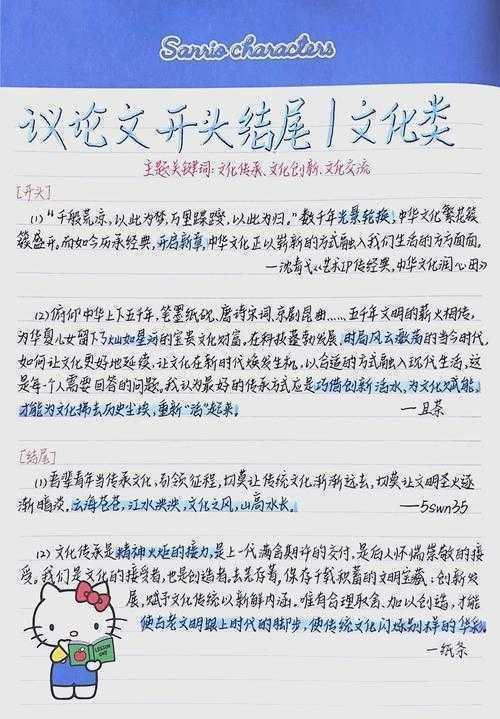 Sanrio characters
议论文开头结尾|文化类
主题关键词:文化传承、文化创新、文化交流
[开头]
(1)“千般荒凉,以此为梦,万里蹀躞,以此为归。”数千年光景轮换,中华文化繁花簇
簇盛开。而如今历承经典,开启新章,中华文化正以崭新的方式融入我们生活的方方面面。
—沈青戈《艺术IP传经典,中华文化润心田》
(2)俯仰中华上下五千年,笔墨纸砚、唐诗宋词、京剧昆曲……五千年文明的薪火相传,
为华夏儿女留下了灿如星河的宝贵文化财富。在科技蓬勃发展、时局风云激荡的当今时代,
如何让文化更好地延续,让文化在新时代焕发生机,以合适的方式融入现代生活,这
是每个人需要回答的问题。我认为最好的传承方式应是巧借创新活水,为文化赋能,
才能为文化拂去历史尘埃,重新“活”起来。 —且茶
[结尾]
(1)吾辈青年当传承文化,引领征程,切莫让传统文化渐渐远去,切莫让文明圣火逐
渐暗淡。云海苍苍,江水泱泱,文化之风,山高水长。 —5swn35
(2)文化传承是精神火炬的接力,是上一代满含期许的交付,是后人怀揣崇敬的接
受。我们是文化的接受者,也是创造者,去芜存菁,保存千载积蓄的文明宝藏;创新发
展,赋予文化传统以新鲜内涵。唯有合理取舍、加以创造,才能
使古老文明跟上时代的脚步,使传统文化闪烁别样的华彩。
—纸条
LESSON ONE